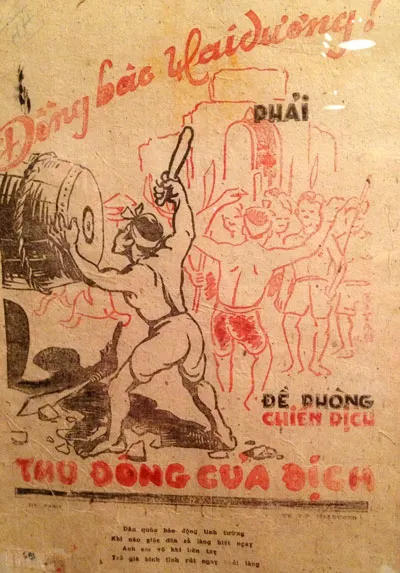 Đồng bào Hải dương!
PHẢI
ĐỀ PHÒNG
CHIẾN DỊCH
THU ĐÔNG CỦA ĐỊCH
Dân quân báo động tinh tường
Khi nào giặc đến xã làng biết ngay
Anh em võ khí liền tay
Trẻ già bình tĩnh rút ngay khỏi làng